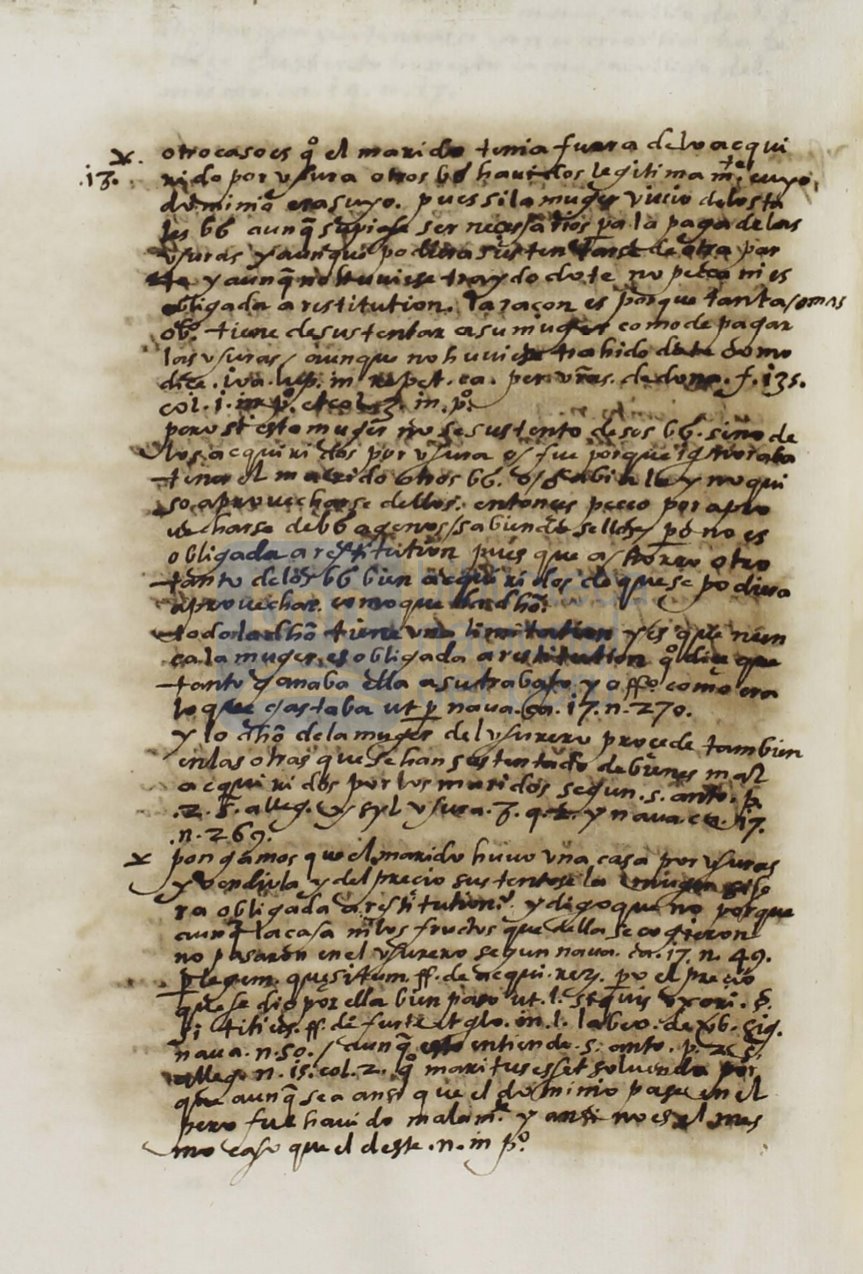 otro caso es q̊ el marido tenia fuera de lo acqui
.13. rido por vsura otros bb havidos legitima m.te cuyo
dominio era suyo. pues si la muger viuio de los ta
les bb aunq̃ supiese ser necessarios pa la paga de las
vsuras y aunque pudiera sustentarse de otra par
te y aunq̃ no huuiese traydo dote no pecca ni es
obligada a restitution. la raçon es porque tanta
ob.º tiene de sustentar a su muger como de pagar
las vsuras / aunque no huuiese trahido dote como
dice . in repet. ca. per vr̃as. de dona. f. 135.
col. 1. in pº. et col. 3. in. pº.
pero si esta muger no se sustento de sos bb. sino de
los acquiridos por vsura o fue porque ignoraba
tener el marido otros bb. o sabiale y no qui
so aprouecharse dellos. entonces pecco por apro
uecharse de bb agenos / sabiendoselo / po no es
obligada a restitution pues que ahorro otro
tanto de los bb bien acquiridos de que se podiera
aprouechar. como que dhõ.
todo la dhõ tiene vna limitation y es que nun
ca la muger es obligada a restitution q̊ dice que
tanto ganaba ella a su trabajo y off.º como era
lo que gastaba ut p̱ naua. ca. 17. n. 270.
y lo dhõ de la muger del vsurero procede tambien
en las otras que se han sustentado de bienes mal
acquiridos por los maridos segun. s. anto. p.
.2. §. alleg. y syl vsura. 7. q. y naua. ca. 17.
.n. 269.
pongamos que el marido huuo vna casa por vsuras
y vendiola y del precio sustentose la muger si se
ra obligada a restitution. y digo que no porque
aunq̃ la casa ni los fructos que della se cogieron
no pasaron en el vsurero segun naua. ca. 17. n. 49.
p̱ legem. quęsitum ff. de acqui. rez. po el precio
que se dio por ella bien paso ut. l. si quis vxori. §.
si titius. ff. de furt. et glo. in. l. labeo. de sig.
naua. n. 50. / aunq̃ esto entiende. s. anto. p. 2. §.
alleg. n. 15. col. 2. q̊ maritus esset soluendo por
que aunq̃ sea ansi que el dominio pase en el
pero fue hauido malam.te y ansi no es el mes
mo caso que el deste .n. in pº.